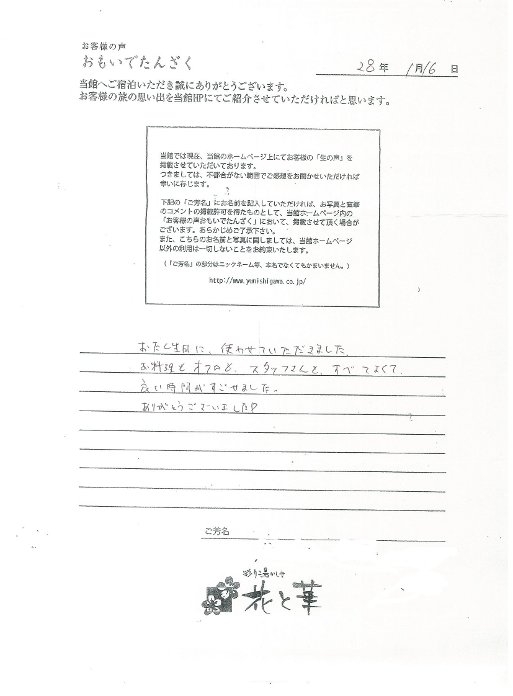 お客様の声
おもいでたんざく
28年 1月16日
当館へご宿泊いただき誠にありがとうございます。
お客様の旅の思い出を当館HPにてご紹介させていただければと思います。
当館では現在、当館のホームページ上にてお客様の「生の声」を
掲載させていただいております。
つきましては、不都合がない範囲でご感想をお聞かせいただければ
幸いに存じます。
下記の「ご芳名」にお名前を記入していただければ、お写真と直筆
のコメントの掲載許可を得たものとして、当館ホームページ内の
「お客様の声おもいでたんざく」において、掲載させて頂く場合が
ございます。あらかじめご了承下さい。
また、こちらのお名前と写真に関しましては、当館ホームページ
以外の利用は一切しないことをお約束いたします。
(「ご芳名」の部分はニックネーム等、本名でなくてもかまいません。)
http://www.yunishigawa.co.jp/
おたん生日に、使わせていただきました
お料理と オフロと、スタッフさんと、すべてよくて、
良い時間がすごせました。
ありがとうございました
ご芳名
彩り湯かしき
花と華